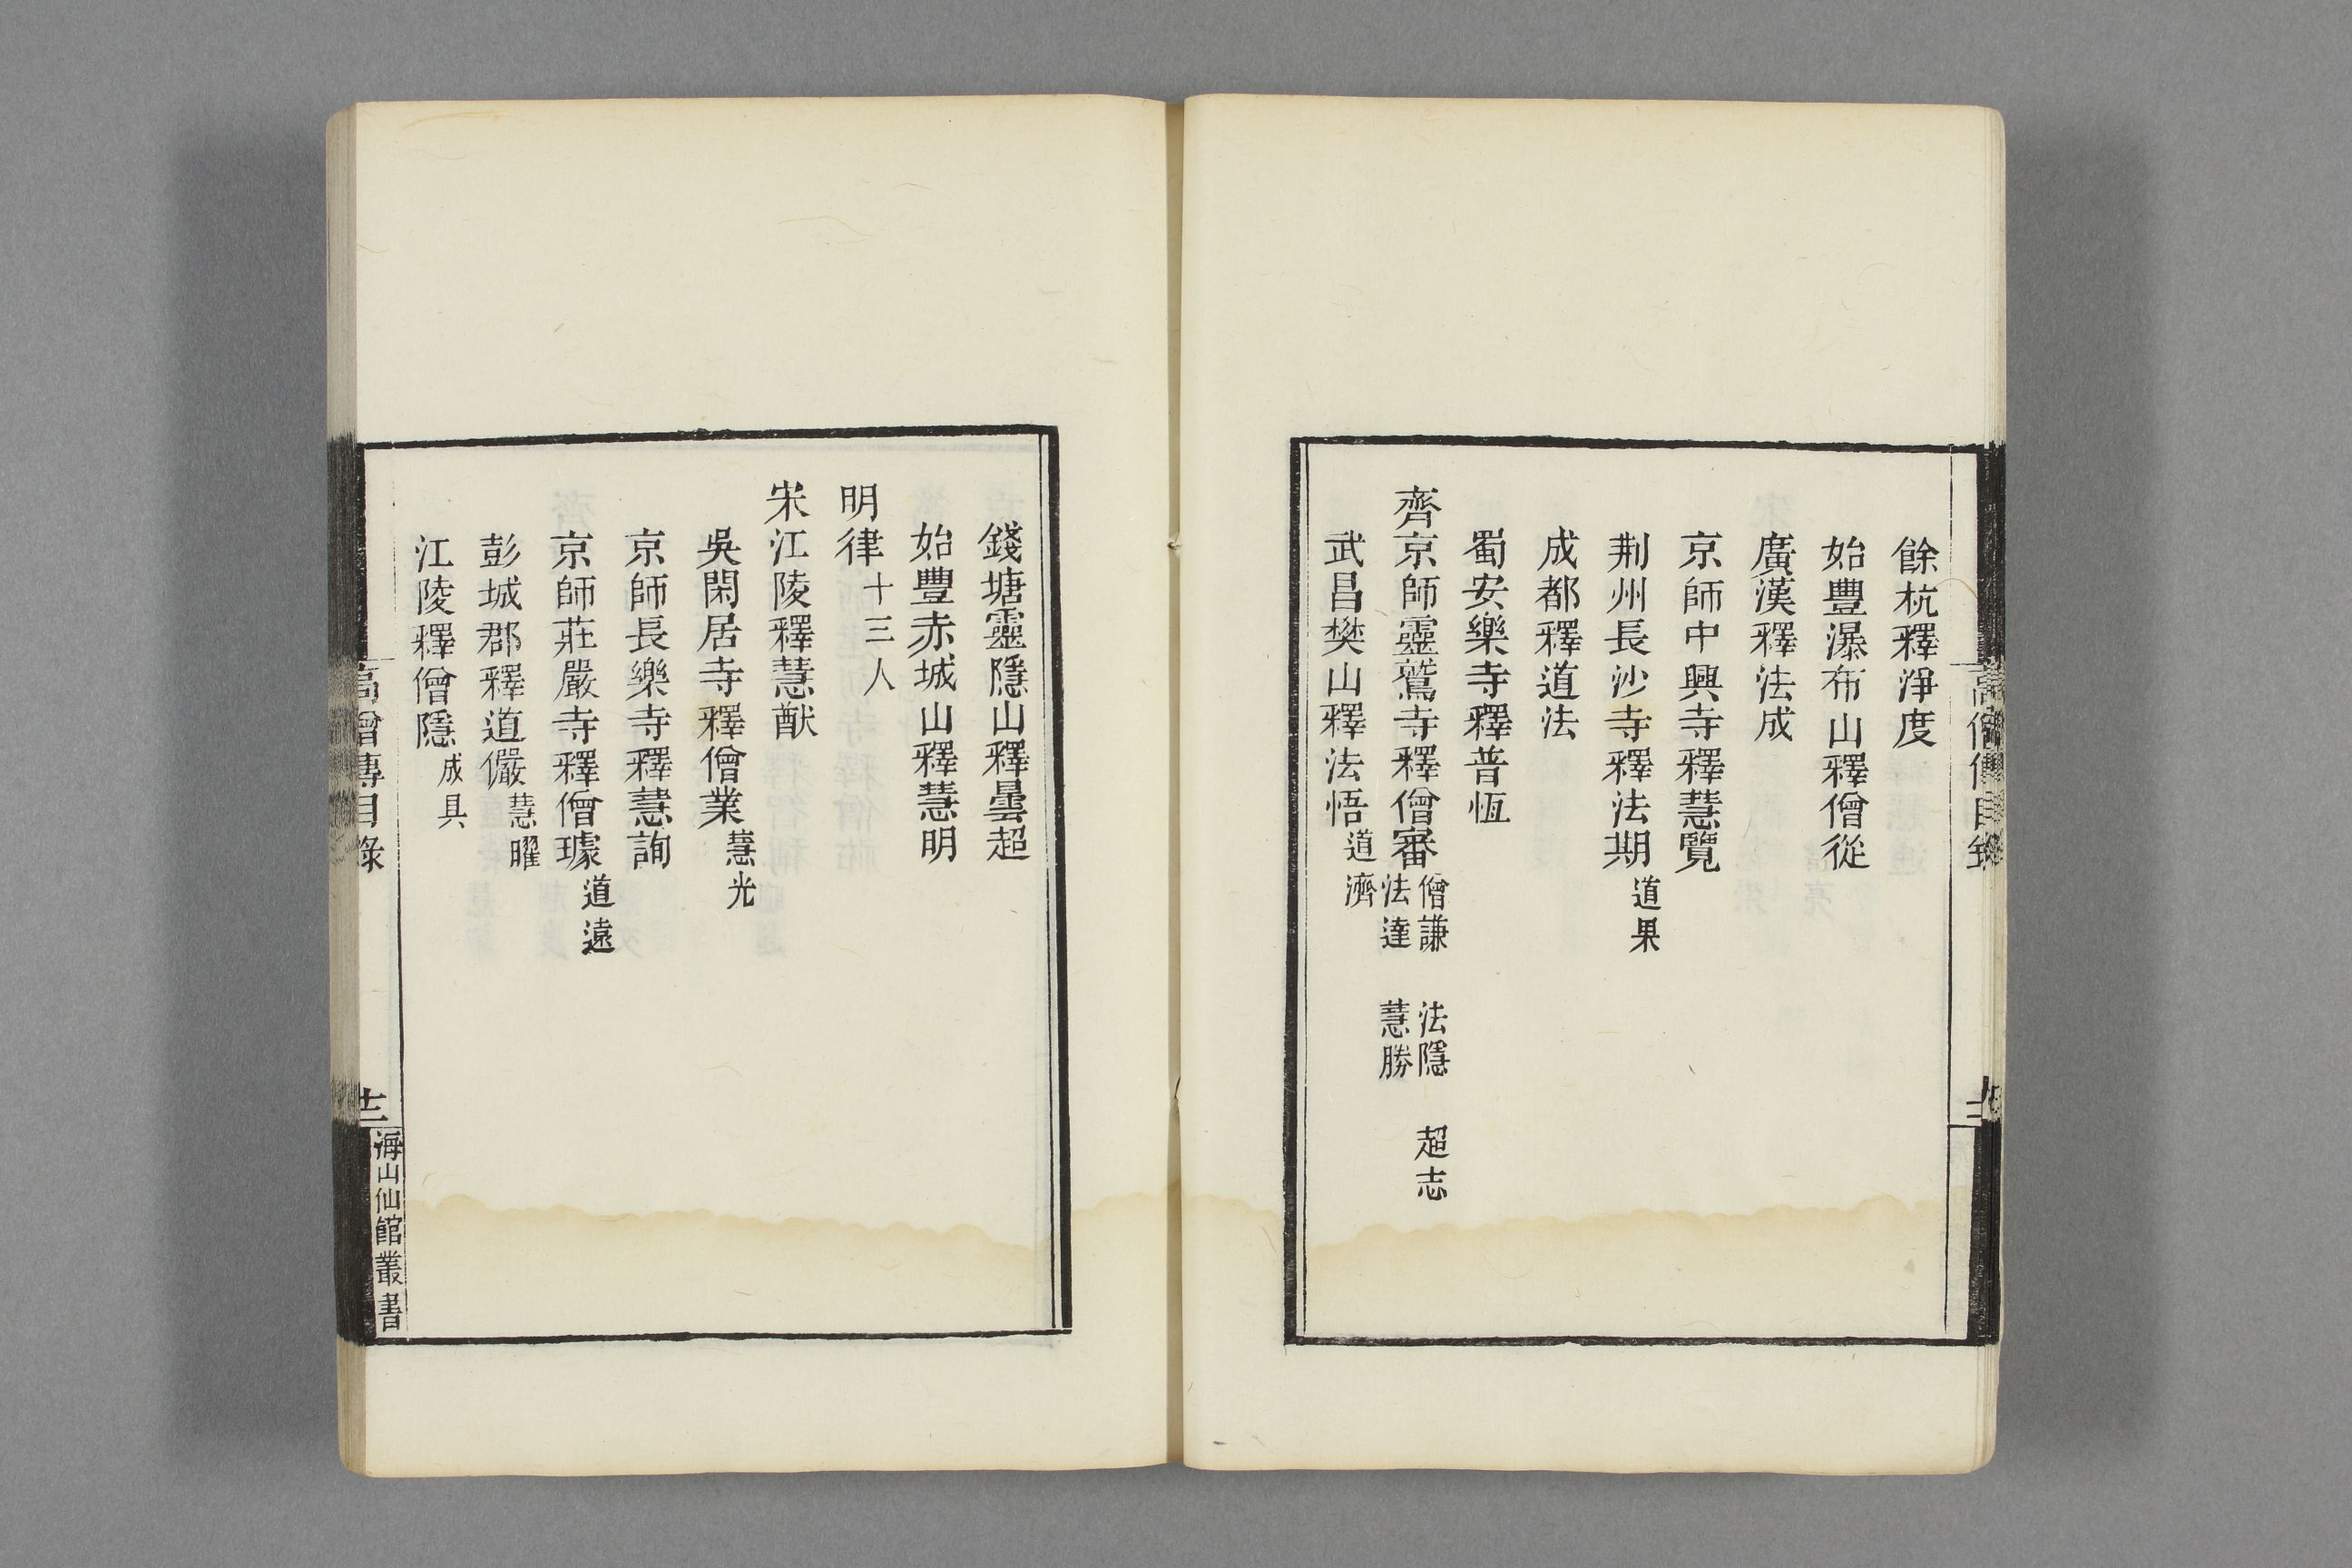 餘杭釋淨度
始豐瀑布山釋僧從
廣漢釋法成
京師中興寺釋慧覽
荆州長沙寺釋法期道果
成都釋道法
蜀安樂寺釋普恆
齊京師靈鷲寺釋僧審僧謙 法隱 超志
法達 慧勝
武昌樊山釋法悟道濟
錢塘靈隱山釋曇超
始豐赤城山釋慧明
明律十三人
宋江陵釋慧猷
吳閑居寺釋僧業慧光
京師長樂寺釋慧詢
京師莊嚴寺釋僧璩道遠
彭城郡釋道儼慧曜
江陵釋僧隱成具
高僧傳目錄
海山仙館叢書